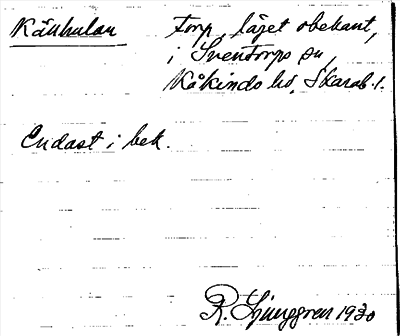 Källhulan Torp, läget obekant,
i Sventorps sn,
Kåkinds hd, Skarab. l.
Endast i bek.
R. Ljunggren 1930